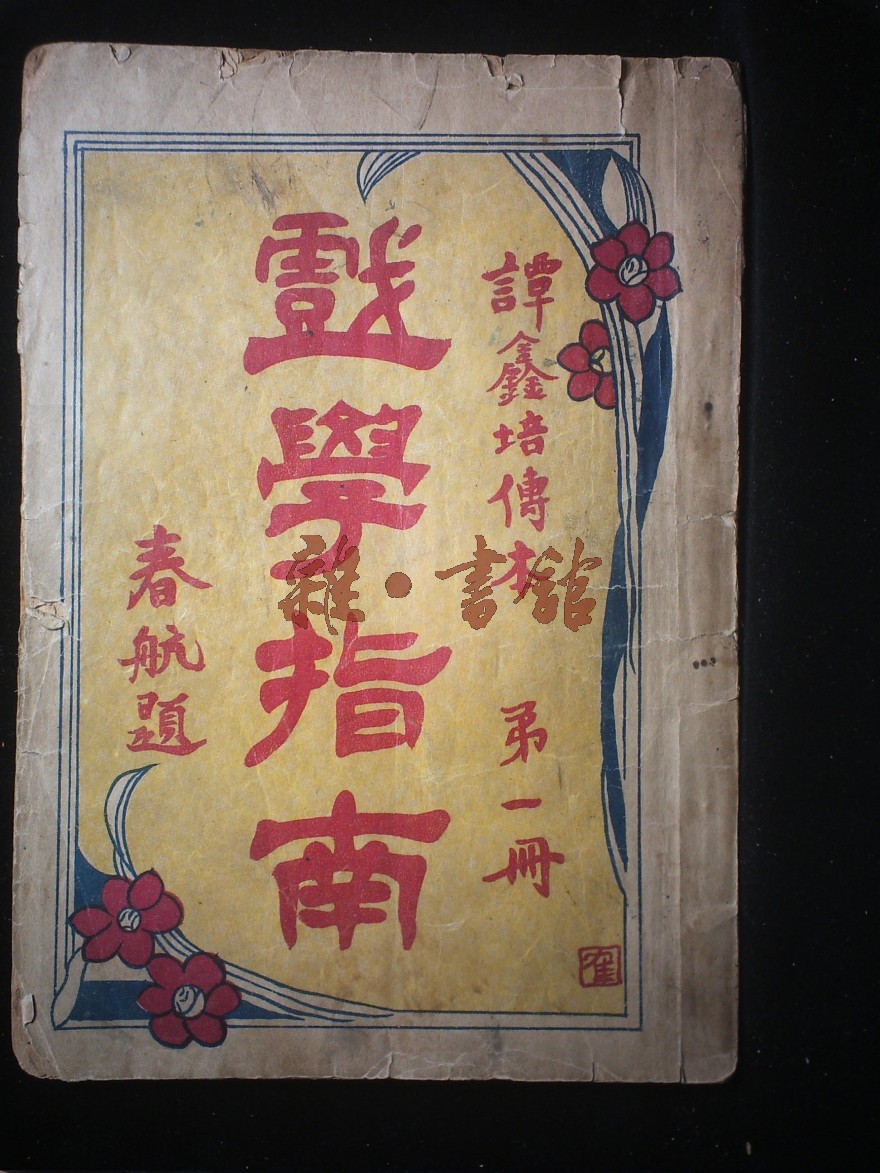 譚鑫培傳本 第一冊
戲學指南
春航題
雜·書舘